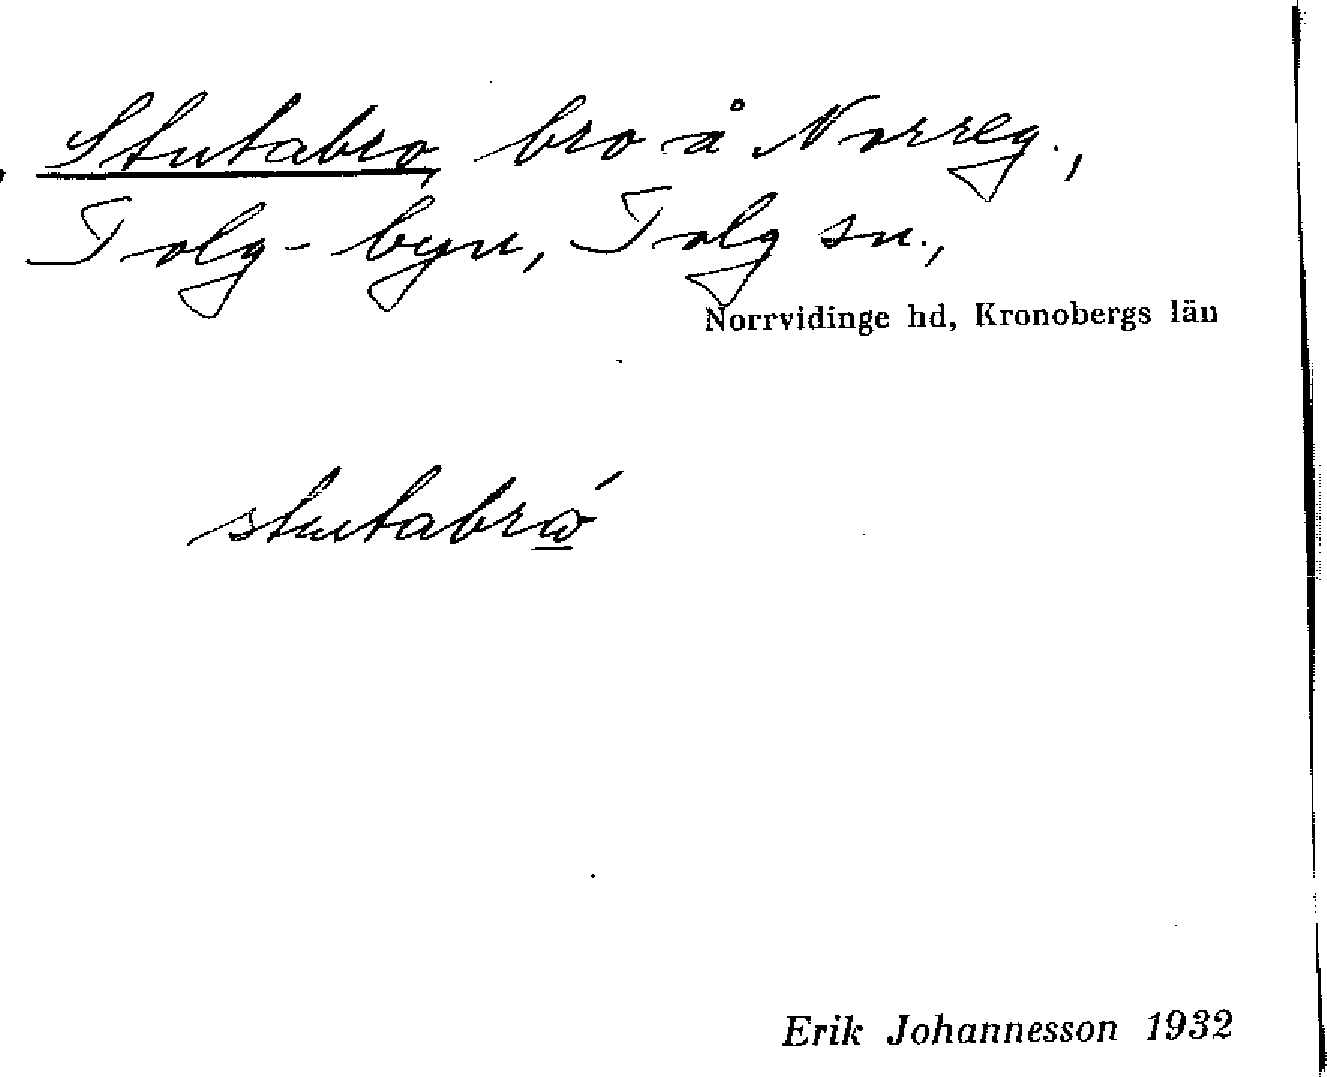 Stutabro, bro å Norreg.,
Tolg-byn, Tolg sn.,
Norrvidinge hd, Kronobergs län
stutabrώ̲
Erik Johannesson 1932